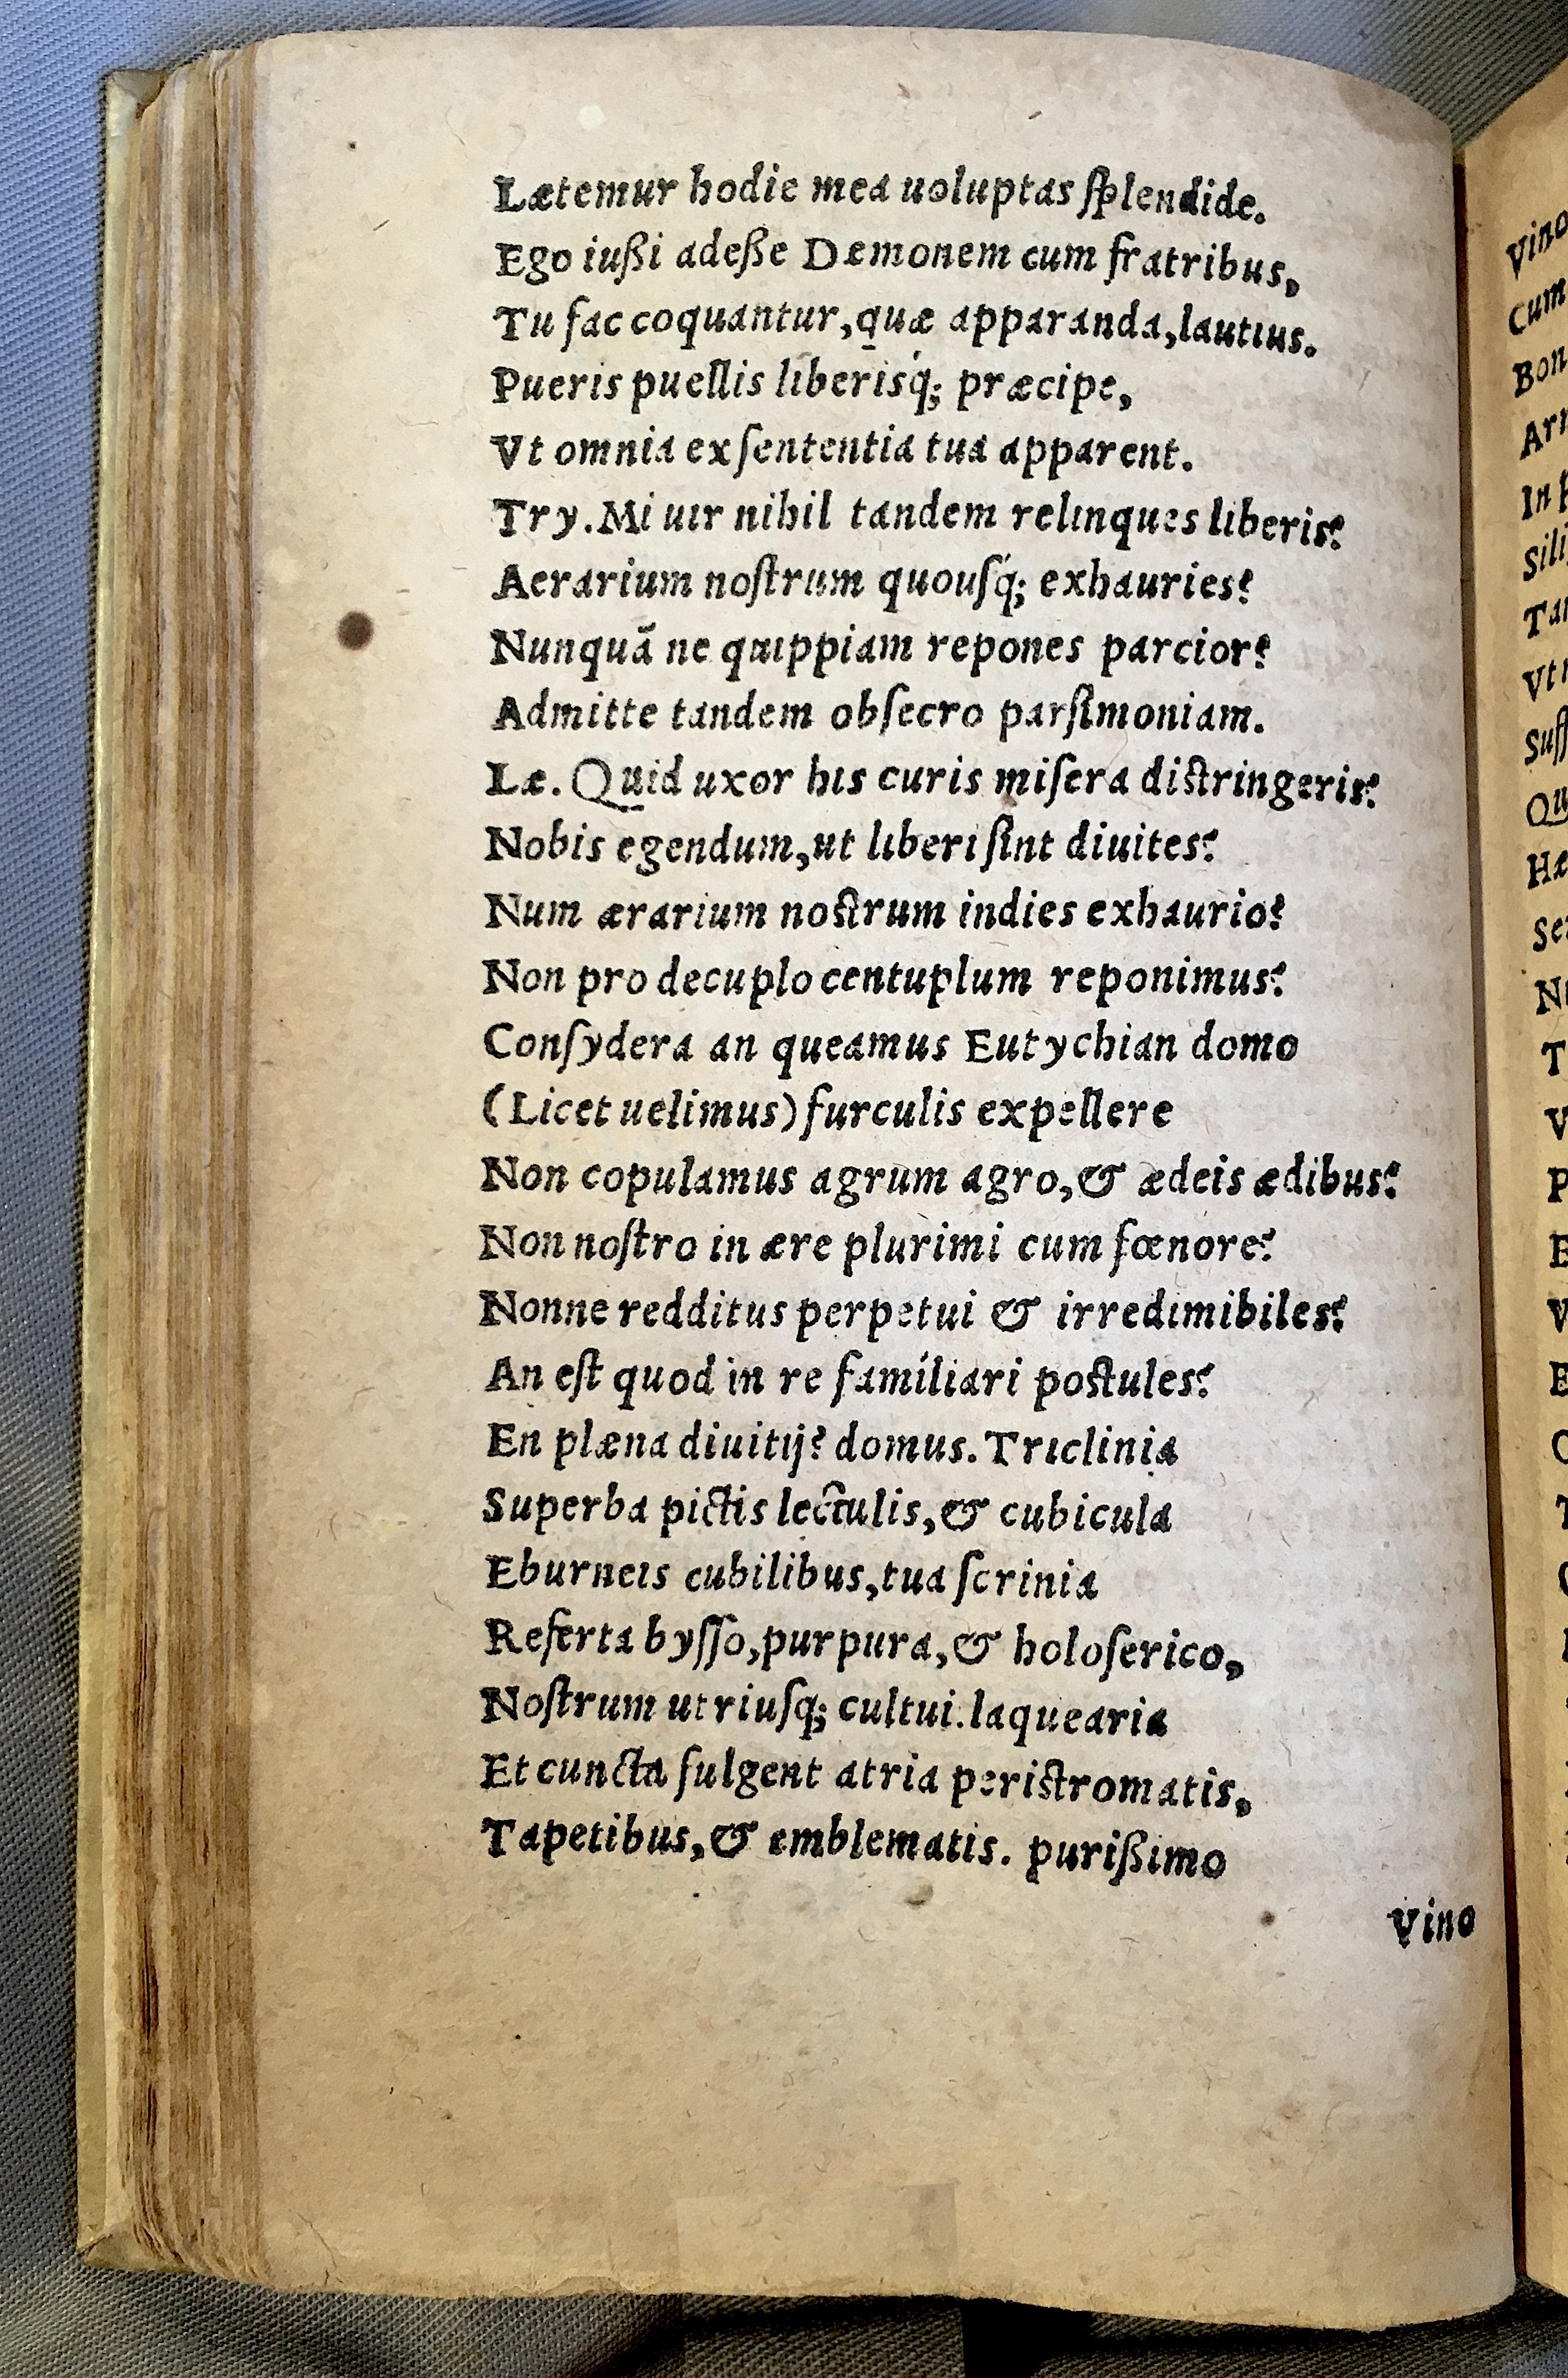 Lætemur hodie mea uoluptas ſplendide.
Ego iußi adeße Dæmonem cum fratribus,
Tu fac coquantur,quæ apparanda,lautius.
Pueris puellis liberisq́; præcipe,
Vt omnia ex ſententia tua apparent.
Try. Mi uir nihil tandem relinques liberis?
Aerarium noſtrum quouſq́; exhauries?
Nunquã ne quippiam repones parcior?
Admitte tandem obſecro parſimoniam.
Læ. Quid uxor his curis miſera diſtringeris?
Nobis egendum,ut liberi ſint diuites?
Num ærarium noſtrum indies exhaurio?
Non pro decuplo centuplum reponimus?
Conſydera an queamus Eutychian domo
(Licet uelimus) furculis expellere
Non copulamus agrum agro,& ædeis ædibus?
Non noſtro in ære plurimi cum fœnore?
Nonne redditus perpetui & irredimibiles?
An eſt quod in re familiari poſtules?
En plæna diuitij? domus. Triclinia
Superba pictis lectulis,& cubicula
Eburneis cubilibus,tua ſcrinia
Referta byſſo,purpura,& holoſerico,
Noſtrum utriuſq; cultui.laquearia
Et cuncta fulgent atria periſtromatis,
Tapetibus,& emblematis. purißimo
Vino
Vino
Cum
Bon